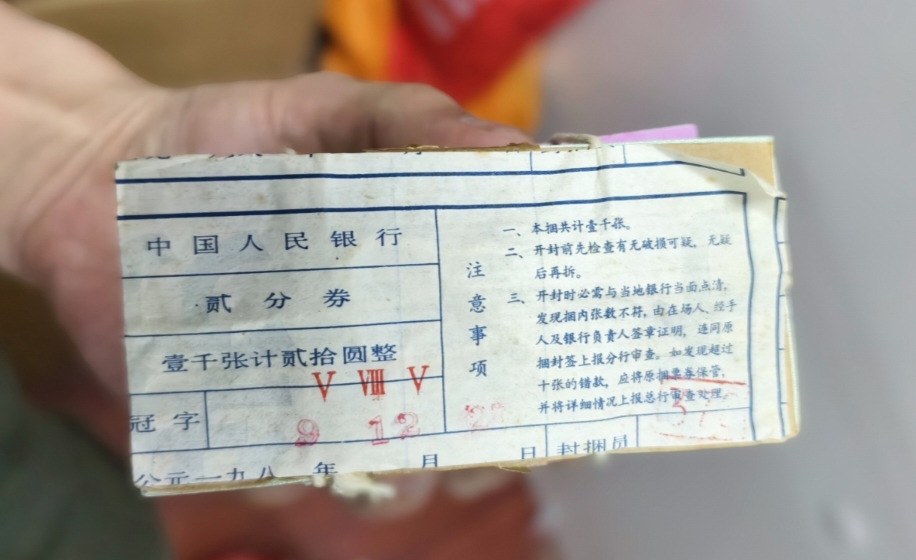 中国人民银行
贰分券
壹千张计贰拾圆整
V Ⅷ V
冠字
9 12
公元一九八 年 月 日
封捆员
注意事项
一、本捆共计壹千张。
二、开封前先检查有无破损可疑，无疑
后再拆。
三、开封时必需与当地银行当面点清，
发现捆内张数不符，由在场人、经手
人及银行负责人签章证明，连同原
捆封签上报分行审查。如发现超过
十张的错款，应将原捆票券保管，
并将详细情况上报总行审查处理。